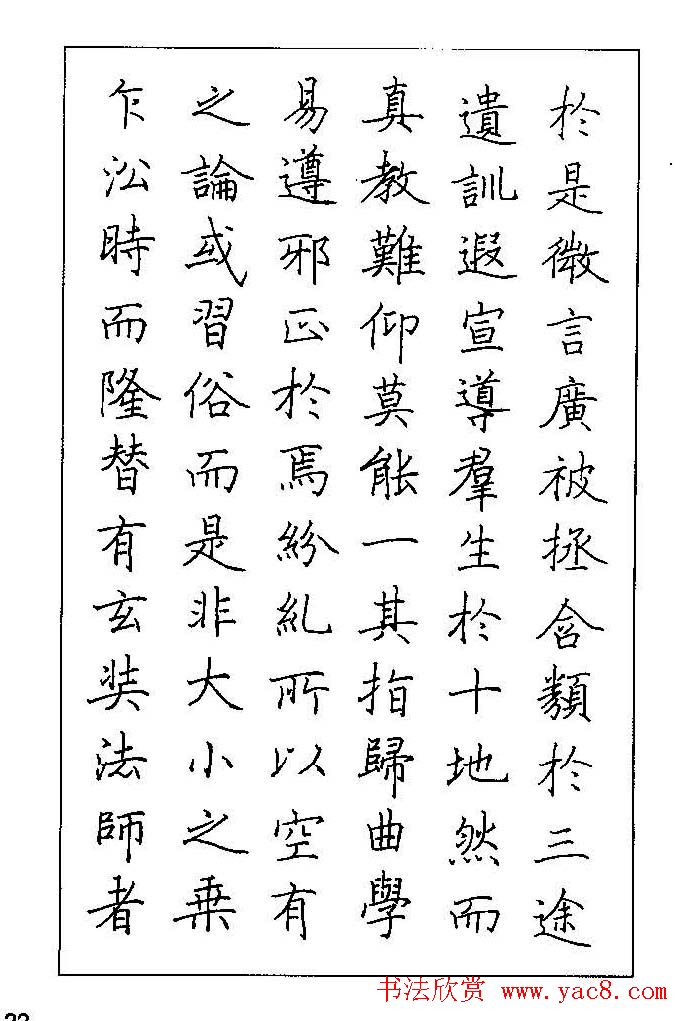 於是微言廣被拯含類於三途
遺訓遐宣導羣生於十地然而
真教難仰莫能一其指歸曲學
易遵邪正於焉紛糺所以空有
之論或習俗而是非大小之乗
乍㳂時而隆替有玄奘法師者
书法欣赏 www.yac8.com